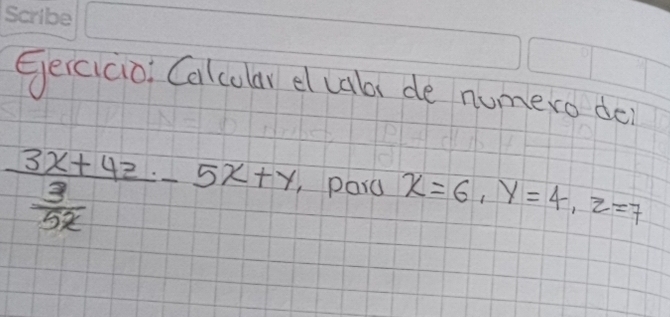 Scribe
Ejercicio: Calcular el valor de numero de:
3x+4z
3
5x
- 5x+y, para x=6, y=4, z=7